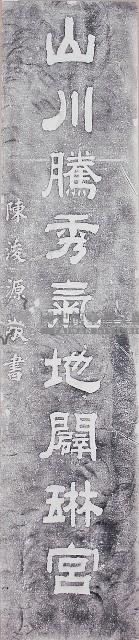 山川騰秀氣地闢琳宮
陳浚源敬書